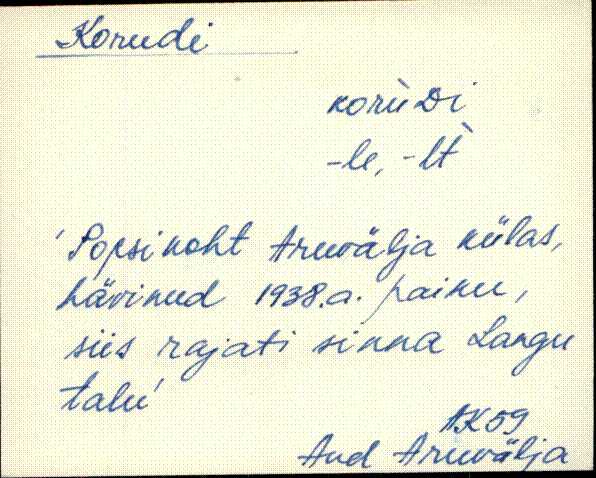 Korudi
korùDi
-le, -lt̀
'Popsikoht Aruvälja külas,
hävinud 1938.a. paiku,
siis rajati sinna Langu
talu'
AK 09
Aud Aruvälja